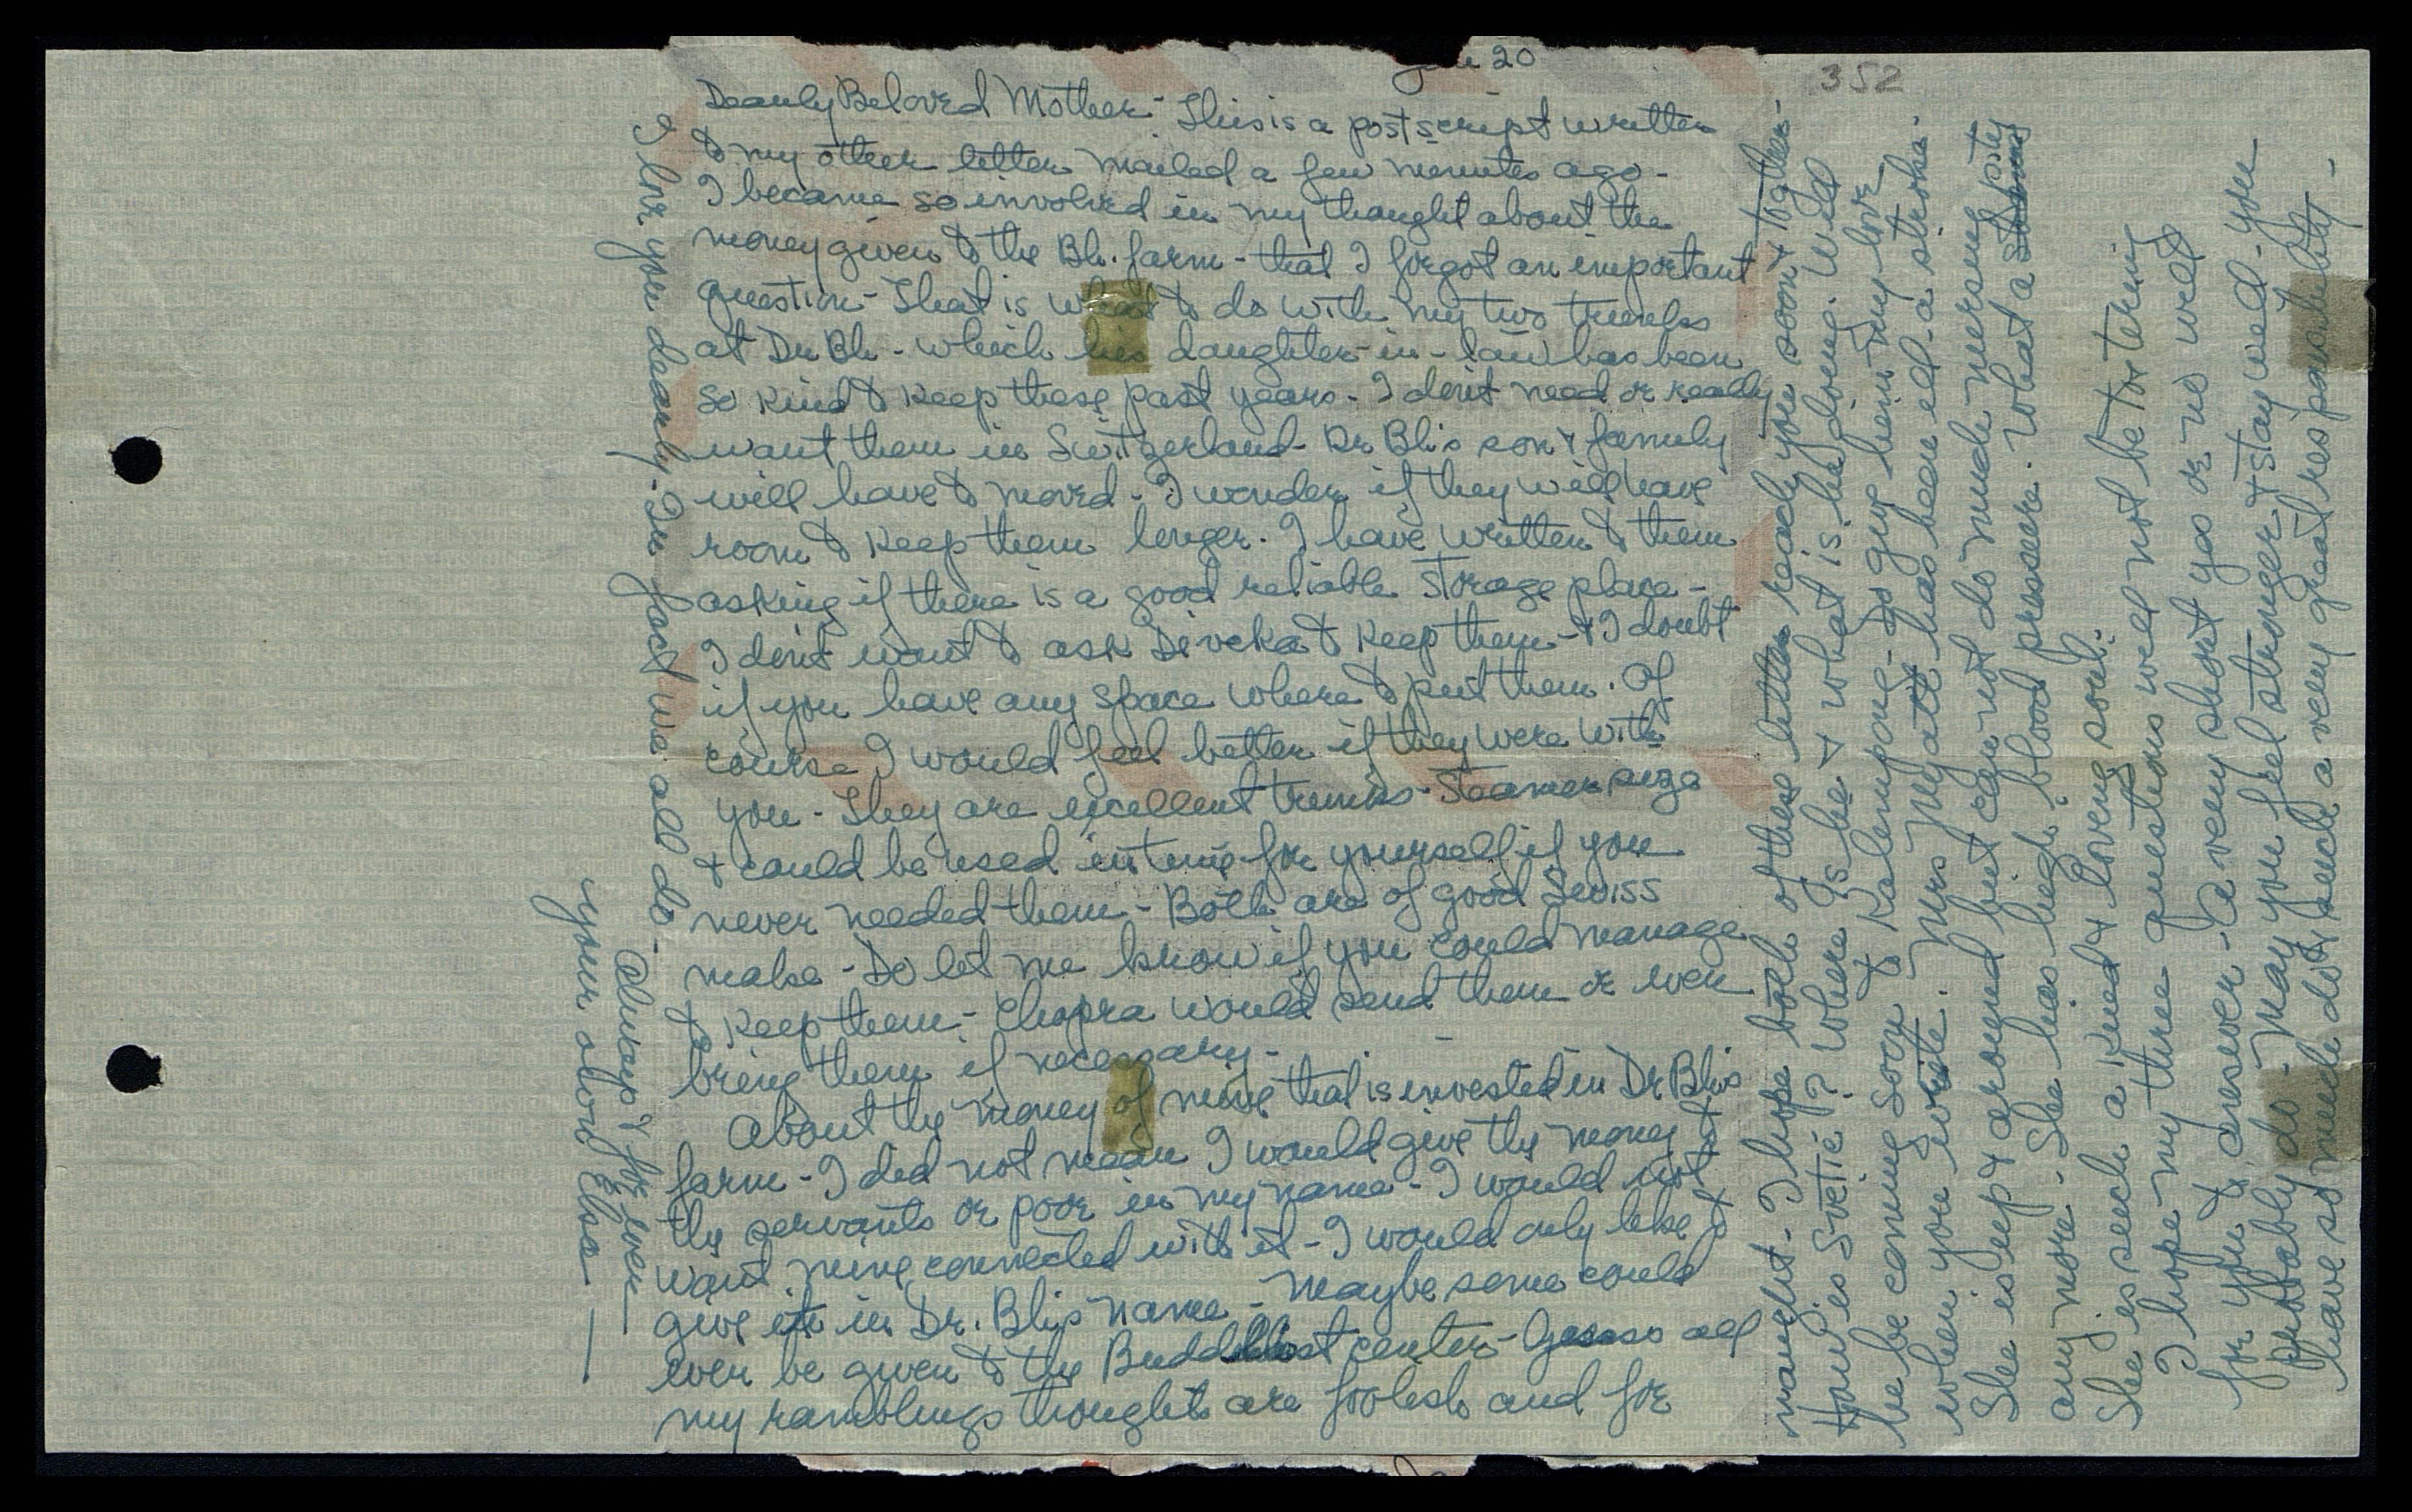 352
June 20
Dearly Beloved Mother - This is a postscript written
to my other letter mailed a few minutes ago -
I became so involved in my thought about the
money given to the Bh. farm - that I forgot an important
question - That is what to do with my two trunks
at Dr Bh - which his daughter-in-law has been
so kind to keep these past years - I don't need or really
want them in Switzerland - Dr Bh's son & family
will have to moved - I wonder if they will have
room to keep them longer. I have written to them
asking if there is a good reliable storage place -
I don't want to ask Deveka to keep them - & I doubt
if you have any space where to put them. Of
course I would feel better if they were with
you - They are excellent trunks - Steamer size
& could be used in time for yourself if you
never needed them - Both are of good Swiss
make - Do let me know if you could manage
to keep them - Chopra would send them or even
bring them if necessary -
About the money of mine that is invested in Dr Bh's
farm - I did not mean I would give the money to
the servants or poor in my name - I would not
want mine connected with it - I would only like to
give it in Dr. Bh's name - maybe some could
even be given to the Buddhist center - all
my ramblings thoughts are foolish and for
naught - I hope both of these letters reach you soon & together -
How is Svetic? Where is he & what is he doing. Will
he be coming soon to Kalimpong - Do give him my love
when you write. Mrs Myatt has been ill - a stroke -
She is up & around but can not do much nursing
any more - She has high blood pressure. What a pity
She is such a kind & loving soul.
I hope my three questions will not be too tering
for you to answer - a very short yes or no will
probably do - May you feel stronger & stay well - you
have so much to do & such a very great responsibility -
I love you dearly - In fact we all do -
Always & for ever -
your own Elsa -